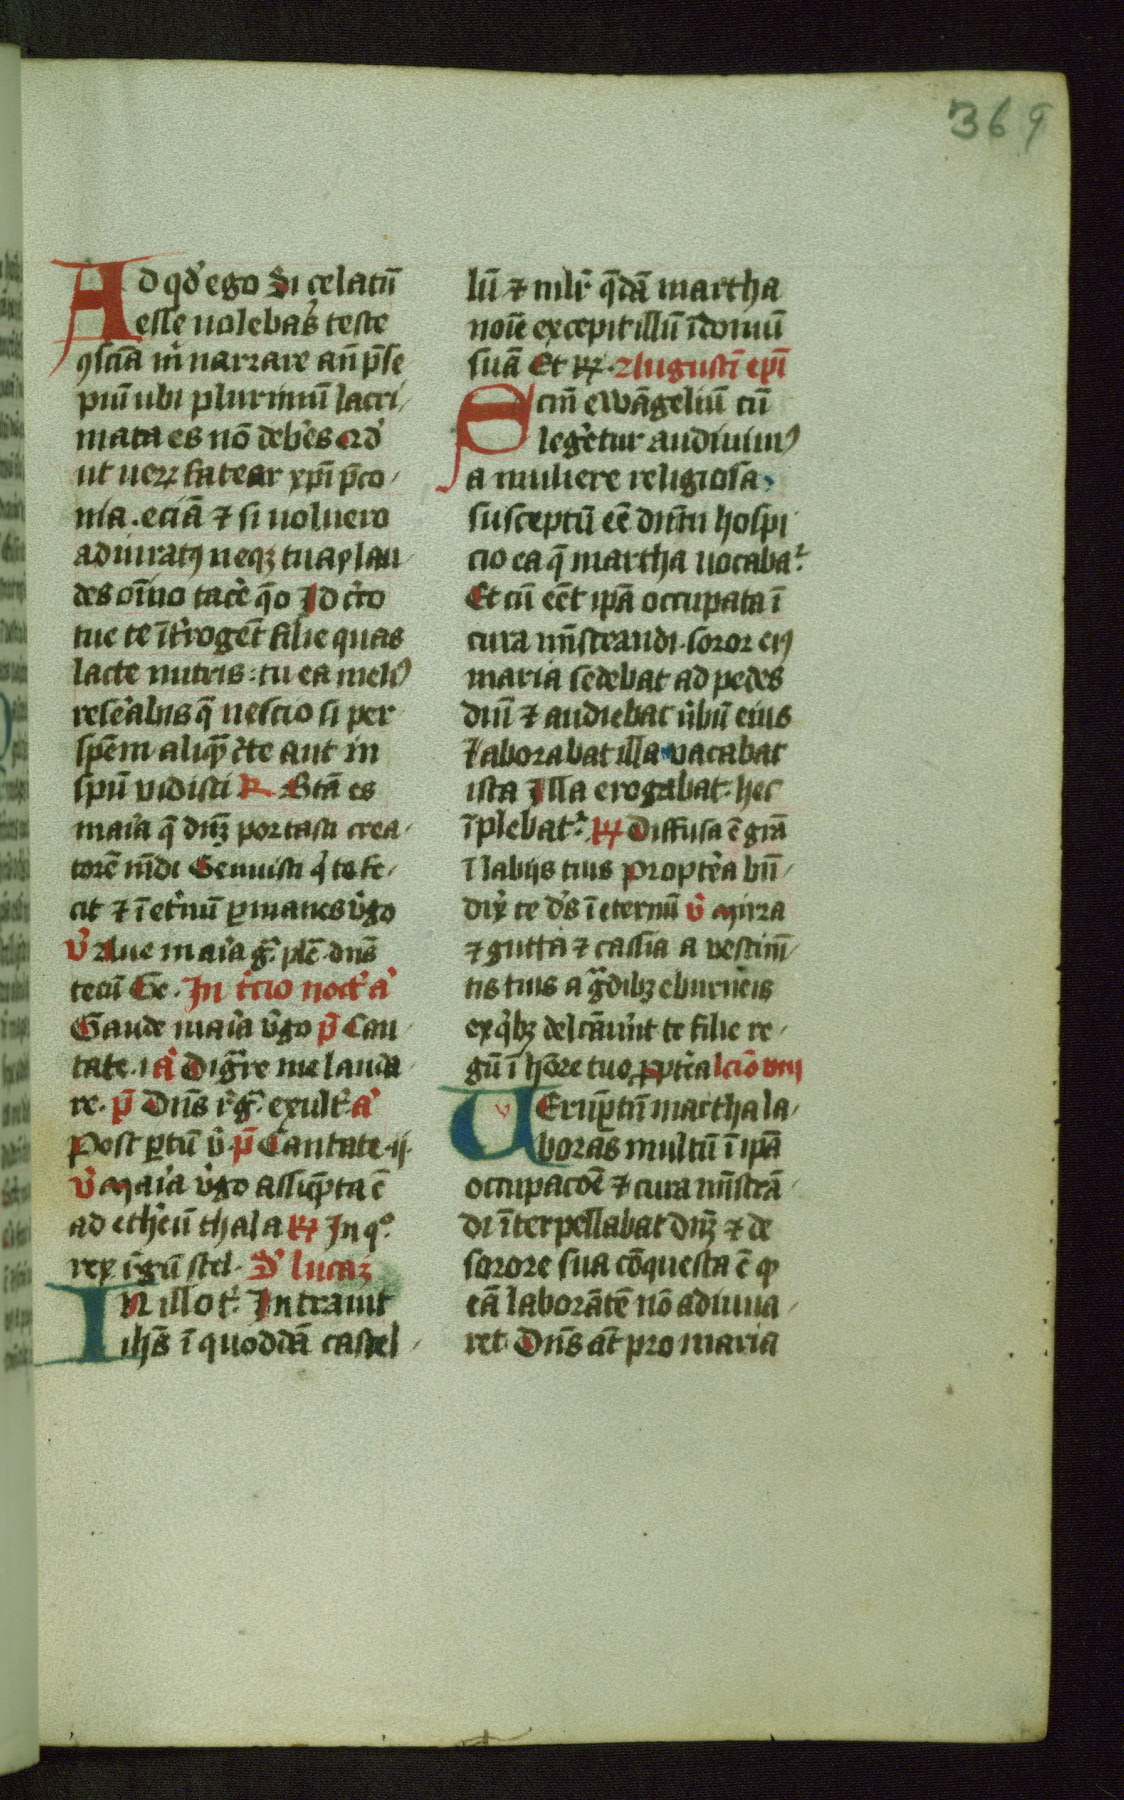 369
Ad qd' ego di celatū
esse nolebas teste
ꝯsciā m̄ narrare an p̄se
piū ubi plurimū lacri
mata es nō debes Qd'
ut ueꝝ fatear xp̄i p̄co
nia . eciā ⁊ si noluero
adiuratꝰ neqꝫ tuas lau
des oīno tacē q̄o Idcͥco
tue te īt'rogēt filie quas
lacte nutris : tu ea melꝰ
rese'abis q̄ nescio si per
spēm aliqͣ cͥte aut in
spū vidisti R Btā es
maͥa q̄ dn̄ꝫ portasti crea
torē mdi Genuisti qͥ te fe
cit ⁊ ī et'nū ꝑmanes v̓go
v̓ Aue maͥa gͣ plē dn̄s
tecū Ge . In t'cio noct' a'
Gaude maͥa v̓go p̄ Can
tate . i a' Dignͣre me lauda
re . p̄ Dn̄s r'gͣ exult' a'
Post ꝑtū v̓ p̄ Cantate . ij
v̓ Maͥa v̓go assūpta ē
ad ethe'ū thala R In qͦ
rex r'gū stel . Sd' lucaꝫ
In illo t' . Intrauit
ih̄s ī quoddā castel
lū ⁊ mlr' q̄dā martha
noīe excepit illū ī domū
suā Et R . Augusti epi
Scm̄ ewāgeliū cū
lege'tur audiuimꝰ
a muliere religiosa
susceptū eē dn̄m hospi
cio ea q̄ martha uocabaͭ
Et cū eēt ipā occupata ī
cura mīstrandi . soror eiꝰ
maria sedebat ad pedes
dnī ⁊ audiebat v̓bū eius
Laborabat illa vacabat
ista Illa erogabat . hec
īplebaͭ . R Diffusa ē grā
ī labijs tuis propte'a bn̄
dix̄ te d's ī eternū v̓ Mirra
⁊ gutta ⁊ cassia a vestim̄
tis tuis a gͣdibꝫ eburneis
ex qͥbꝫ delcāu't te filie re
gū ī hōre tuo ꝓpte'a lc̄io viij
Uerūptn̄ martha la
boras multū ī ipā
occupacōe ⁊ cura mīstrā
di īterpellabat dn̄ꝫ ⁊ de
sorore sua cōquesta ē ꝙ
eā laborātē nō adiuua
ret Dn̄s āt pro maria